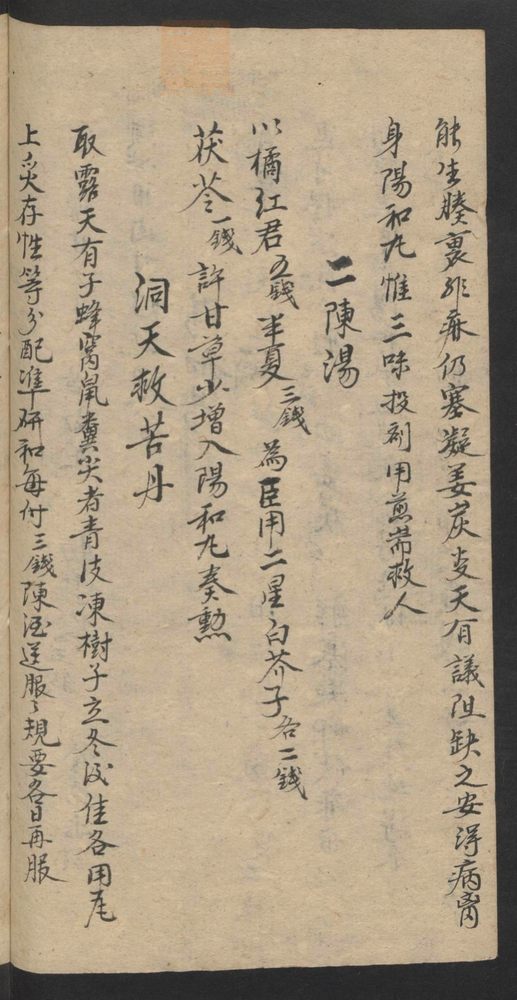 能生腠裏非麻仍塞凝姜炭麦天有議阻缺之安得病胥
身陽和丸惟三味投劑用煎常救人
二陳湯
以橘红君五錢半夏三錢為臣用二星白芥子各二錢
茯苓一錢許甘草少增入陽和丸奏勲
洞天救苦丹
取露天有子蜂窩鼠糞尖者青皮凍樹子立冬後佳各用尾
上炙存性等分配準研和每付三錢陳酒送服〻規要各日再服